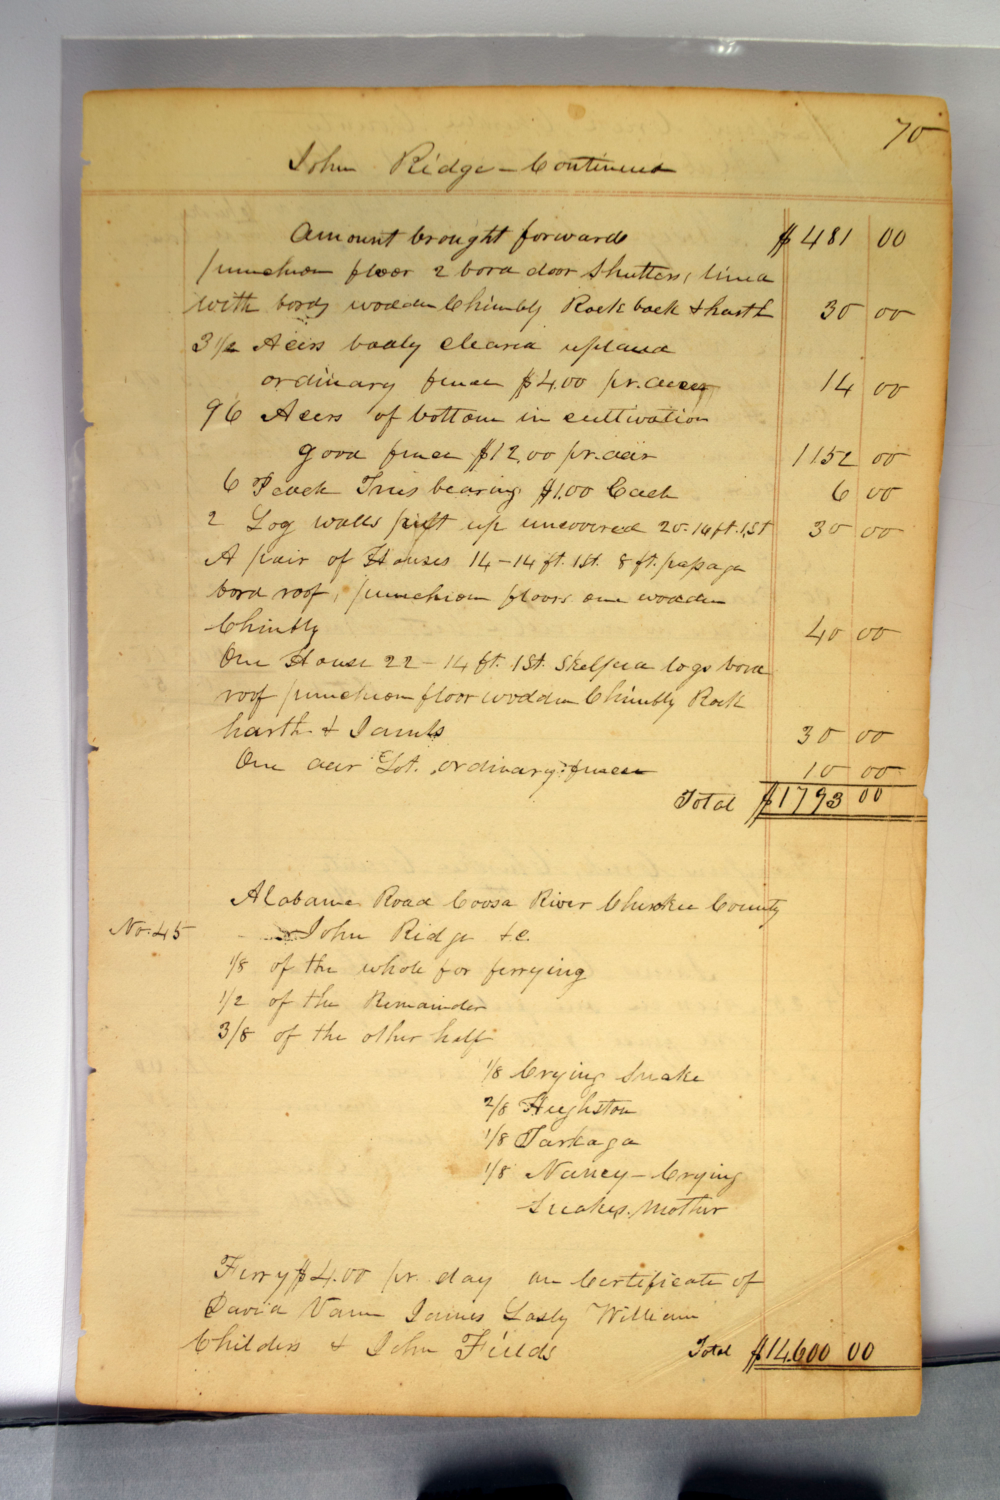 70
John Ridge - Continued
Amount brought forward $481 00
puncheon floor 2 bord door shutters, lined
with bords wooden Chimbly Rock back & harth 30 00
3 1/2 Acirs badly cleared upland
ordinary fence $4.00 pr. acer 14 00
96 Acers of bottom in cultivation
good fence $12.00 pr. acir 1152 00
6 Peach Trees bearing $1.00 Each 6 00
2 Log walls just up uncovered 20-14 ft. 1 St 30 00
A pair of Houses 14-14 ft. 1 St. 8 ft. passage
bord roof, puncheon floors one wooden
Chimbly 40 00
One House 22-14 ft. 1 St. skelped logs bord
roof puncheon floor wooden Chimbly Rock
harth & Jambs 30 00
One acir Lot, ordinary fence 10 00
Total $1793 00
Alabama Road Coosa River Cherokee County
No. 45 John Ridge &c.
1/8 of the whole for ferrying
1/2 of the Remainder
3/8 of the other half
1/8 Crying Snake
2/8 Hughston
1/8 Tarkaga
1/8 Nancy - Crying
Snakes. Mother
Ferry $4.00 pr. day on Certificate of
David Vann James Lasly William
Childers & John Fields Total $14600 00